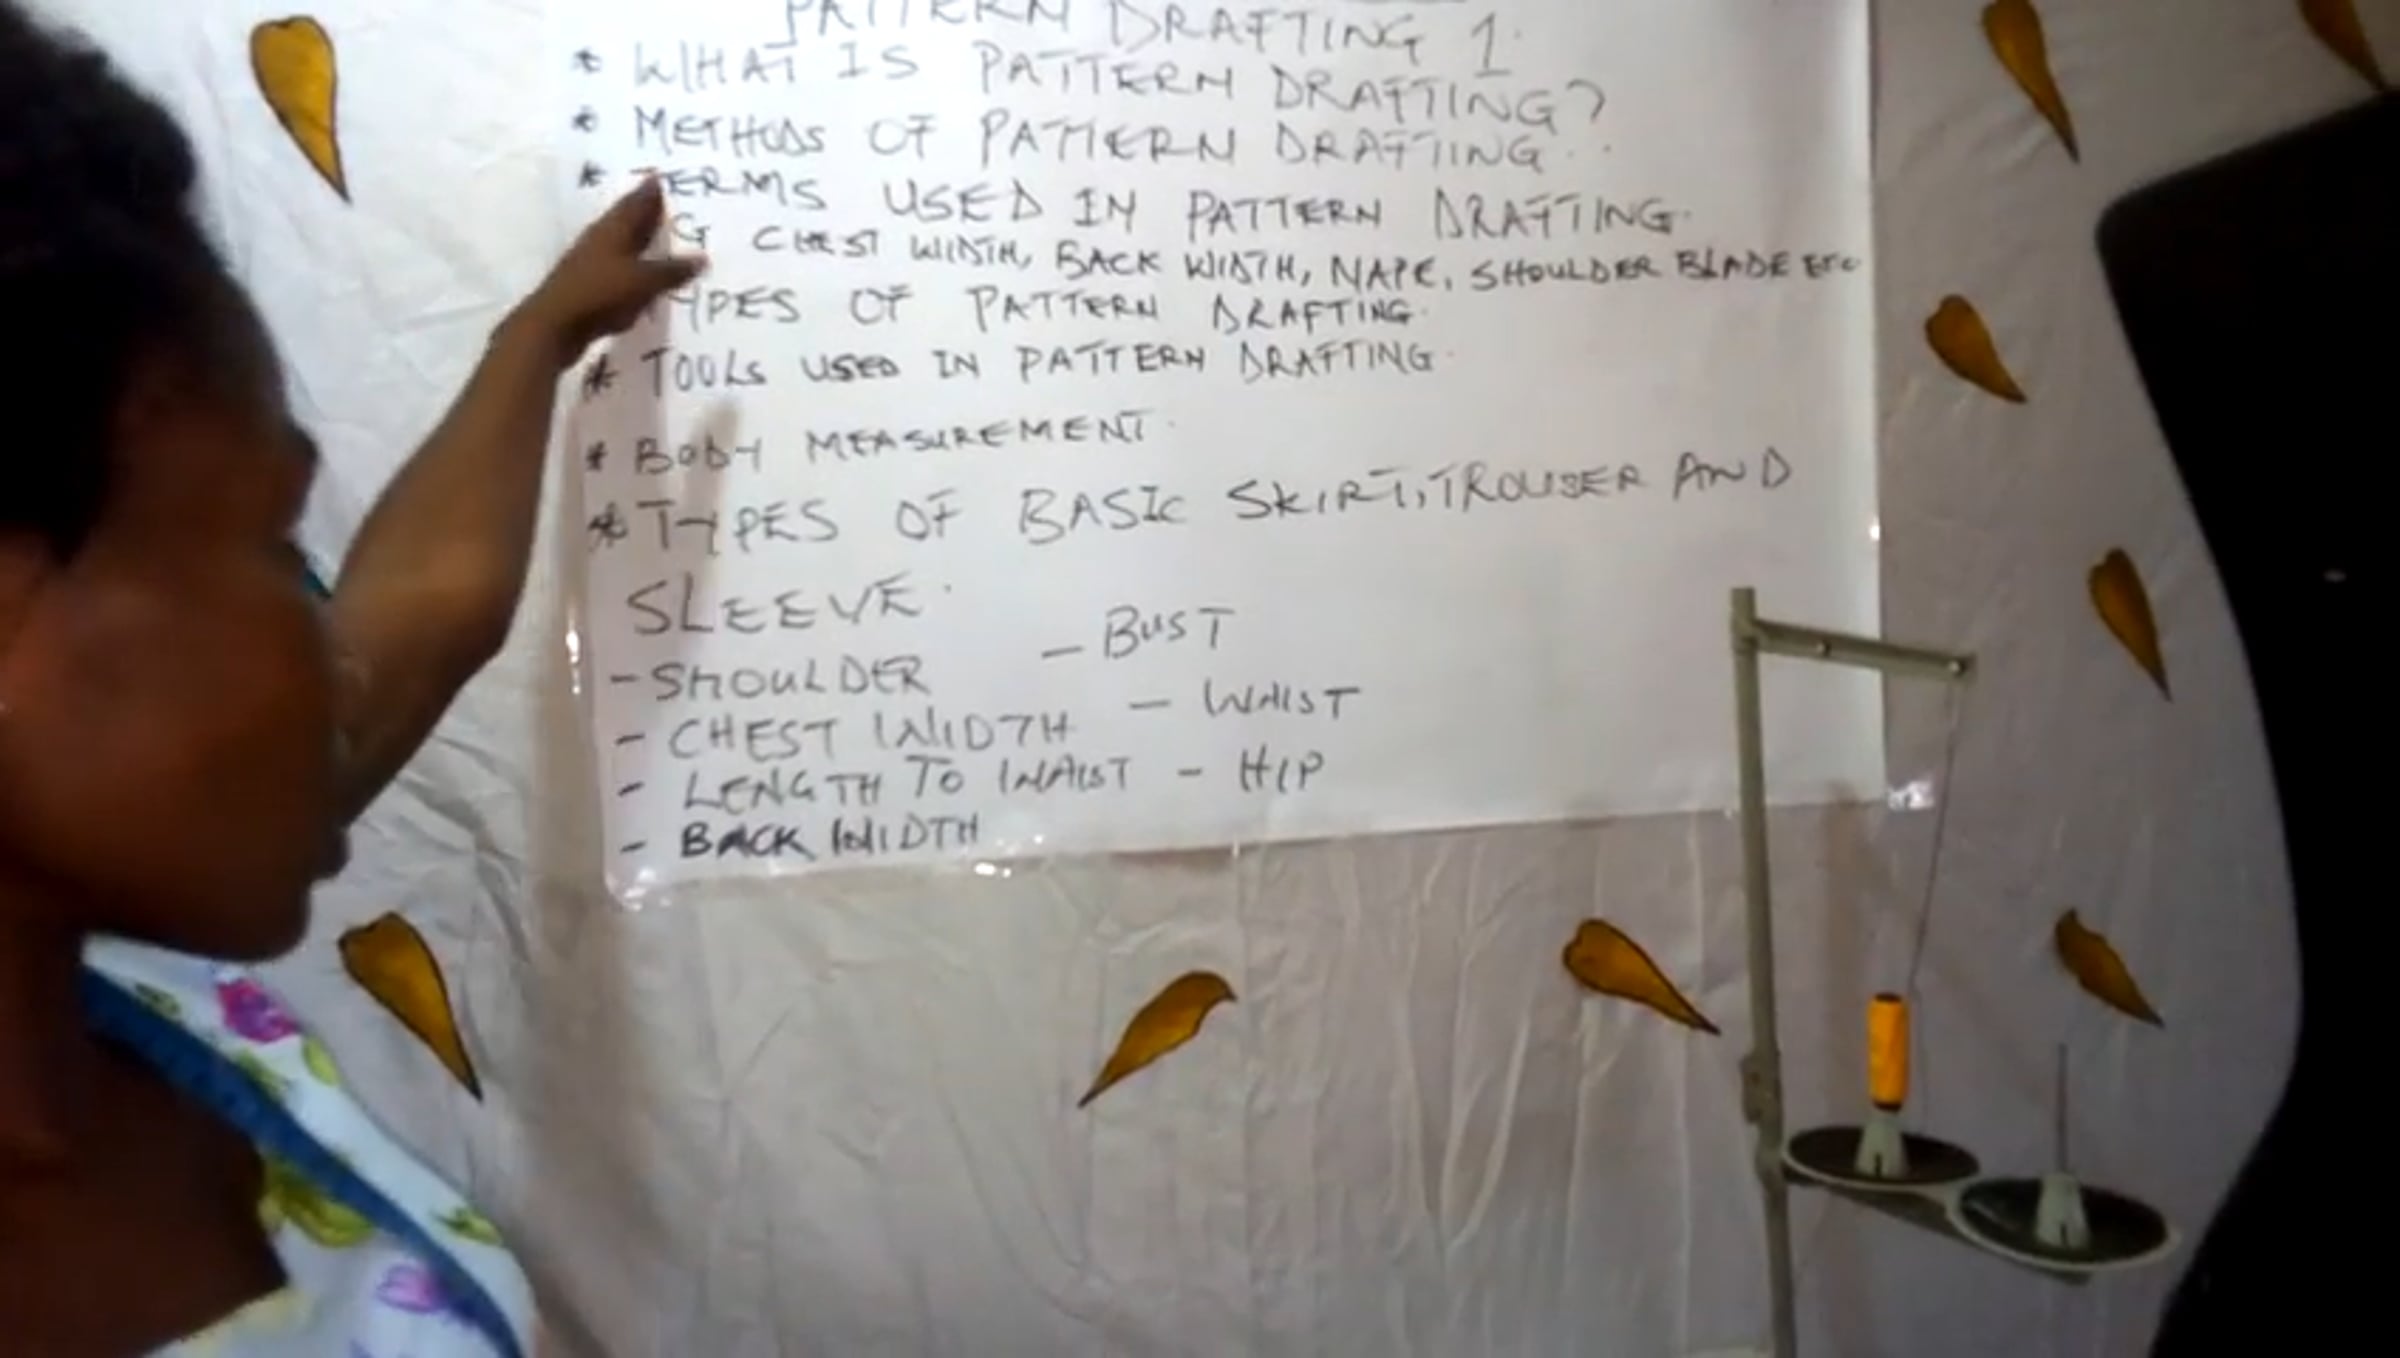 PATTERN DRAFTING 1.
* WHAT IS PATTERN DRAFTING?
* METHODS OF PATTERN DRAFTING..
* TERMS USED IN PATTERN DRAFTING.
G CHEST WIDTH, BACK WIDTH, NAPE, SHOULDER BLADE ETC
TYPES OF PATTERN DRAFTING.
* TOOLS USED IN PATTERN DRAFTING.
* BODY MEASUREMENT.
* TYPES OF BASIC SKIRT, TROUSER AND
SLEEVE.
- SHOULDER - BUST
- CHEST WIDTH - WAIST
- LENGTH TO WAIST - HIP
- BACK WIDTH